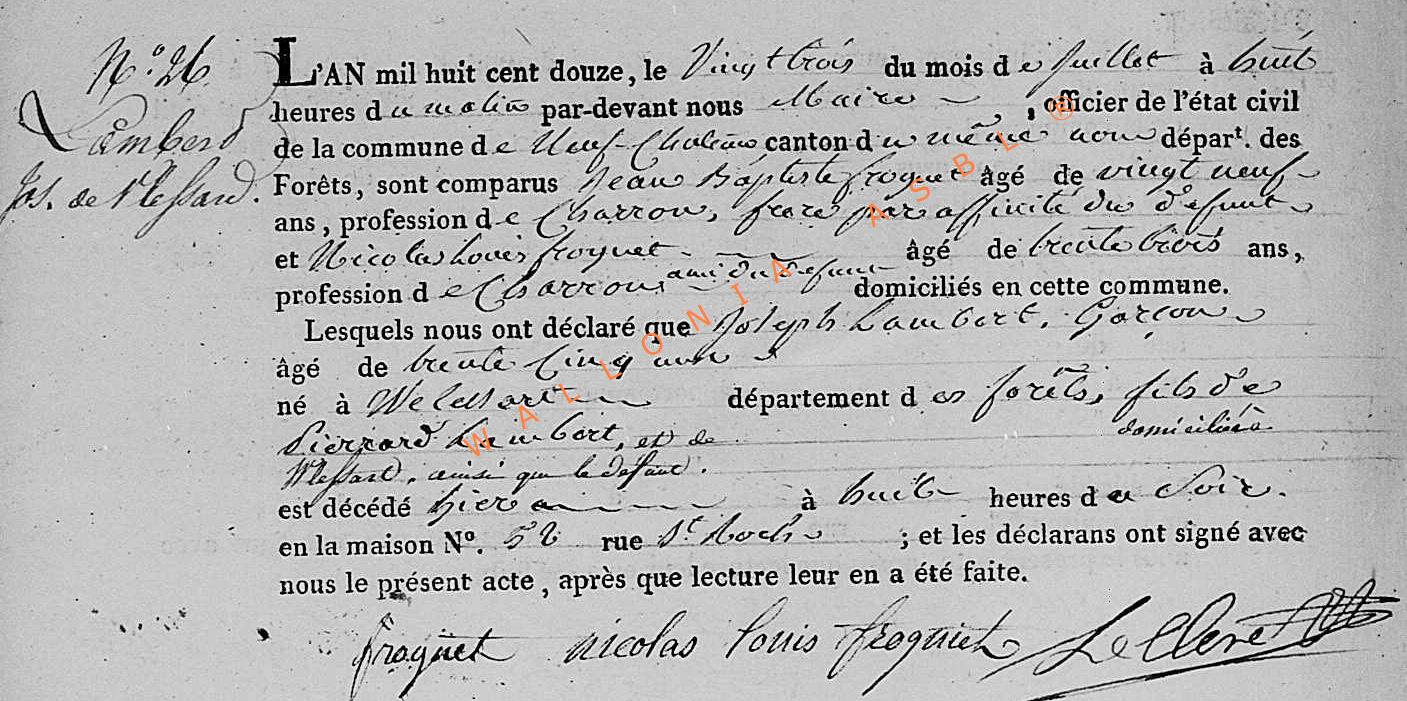 N.° 26
Lambert
Jos. de Wlessard.
L'AN mil huit cent douze, le Vingt trois du mois de Juillet à huit
heures du matin par-devant nous Maire, officier de l'état civil
de la commune de Neuf-Chateau canton du même nom départ. des
Forêts, sont comparus Jean Baptiste froguet âgé de vingt neuf
ans, profession de Charron, frere par affinité du defunt
et Nicolas Louis froguet âgé de trente trois ans,
profession de Charron, ami du defunt domiciliés en cette commune.
Lesquels nous ont déclaré que Joseph Lambert, Garçon
âgé de trente Cinq ans
né à département des forêts, fils de
Pierrard Lambert, et de domicilié à
Wlessard, ainsi que le defunt.
est décédé hier à huit heures du Soir.
en la maison N°. 52 rue St Roch ; et les déclarans ont signé avec
nous le présent acte, après que lecture leur en a été faite.
froguet nicolas louis froguet LeClere
WALLONIA ASBL ®